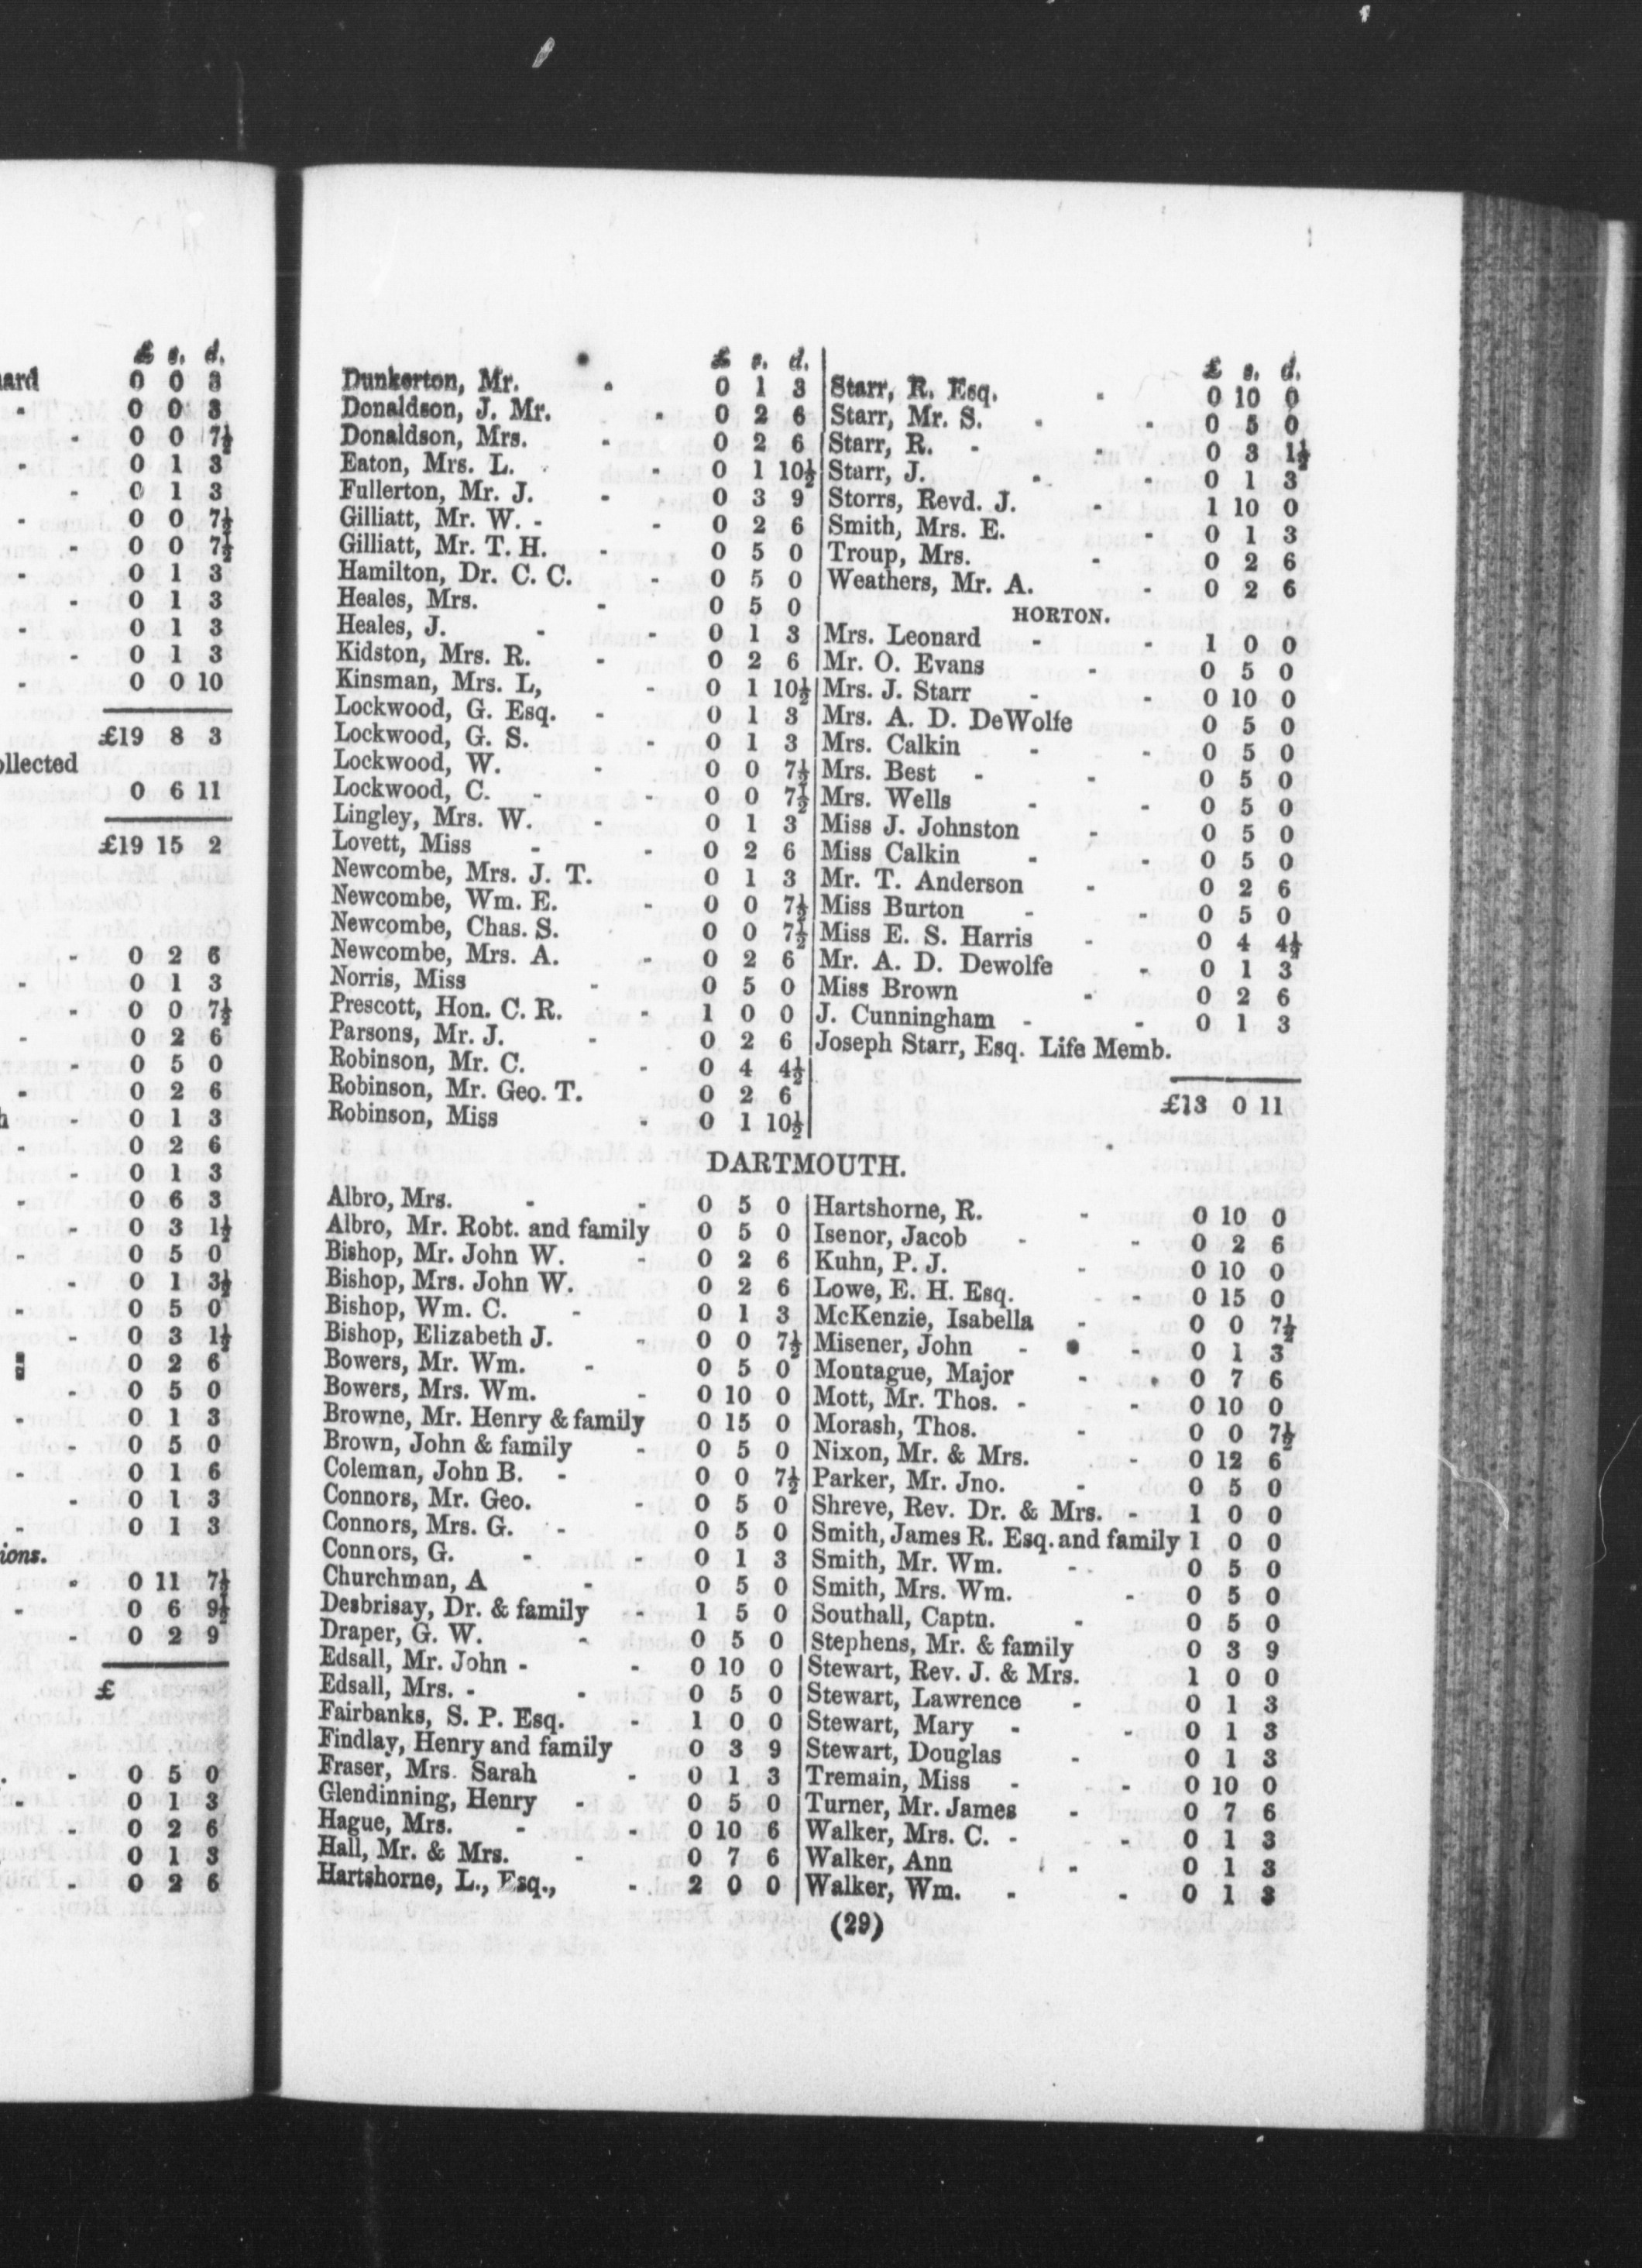 £ s. d.
ard 0 0 3
- 0 0 3
- 0 0 7½
- 0 1 3
- 0 1 3
- 0 0 7½
- 0 0 7½
- 0 1 3
- 0 1 3
- 0 1 3
- 0 1 3
- 0 0 10
£19 8 3
ollected
0 6 11
£19 15 2
- 0 2 6
- 0 1 3
- 0 0 7½
- 0 2 6
- 0 5 0
- 0 2 6
- 0 1 3
- 0 2 6
- 0 1 3
- 0 6 3
- 0 3 1½
- 0 5 0
- 0 1 3½
- 0 5 0
- 0 3 1½
0 2 6
- 0 5 0
- 0 1 3
- 0 5 0
- 0 1 6
- 0 1 3
- 0 1 3
ions.
- 0 11 7½
- 0 6 9½
- 0 2 9
£
- 0 5 0
- 0 1 3
- 0 2 6
- 0 1 3
- 0 2 6
£ s. d.
Dunkerton, Mr. - 0 1 3
Donaldson, J. Mr. - 0 2 6
Donaldson, Mrs. - 0 2 6
Eaton, Mrs. L. - - 0 1 10½
Fullerton, Mr. J. - 0 3 9
Gilliatt, Mr. W. - - 0 2 6
Gilliatt, Mr. T. H. - 0 5 0
Hamilton, Dr. C. C. - 0 5 0
Heales, Mrs. - 0 5 0
Heales, J. - - 0 1 3
Kidston, Mrs. R. - 0 2 6
Kinsman, Mrs. L, - 0 1 10½
Lockwood, G. Esq. - 0 1 3
Lockwood, G. S. - 0 1 3
Lockwood, W. - 0 0 7½
Lockwood, C. - - 0 0 7½
Lingley, Mrs. W. - 0 1 3
Lovett, Miss - - 0 2 6
Newcombe, Mrs. J. T. 0 1 3
Newcombe, Wm. E. - 0 0 7½
Newcombe, Chas. S. 0 0 7½
Newcombe, Mrs. A. - 0 2 6
Norris, Miss - 0 5 0
Prescott, Hon. C. R. - 1 0 0
Parsons, Mr. J. - 0 2 6
Robinson, Mr. C. - 0 4 4½
Robinson, Mr. Geo. T. 0 2 6
Robinson, Miss - 0 1 10½
£ s. d.
Starr, R. Esq. - 0 10 0
Starr, Mr. S. - - 0 5 0
Starr, R. - - 0 3 1½
Starr, J. - - 0 1 3
Storrs, Revd. J. - 1 10 0
Smith, Mrs. E. - 0 1 3
Troup, Mrs. - 0 2 6
Weathers, Mr. A. - 0 2 6
HORTON.
Mrs. Leonard - - 1 0 0
Mr. O. Evans - 0 5 0
Mrs. J. Starr - - 0 10 0
Mrs. A. D. DeWolfe 0 5 0
Mrs. Calkin - - 0 5 0
Mrs. Best - - 0 5 0
Mrs. Wells - - 0 5 0
Miss J. Johnston - 0 5 0
Miss Calkin - - 0 5 0
Mr. T. Anderson - 0 2 6
Miss Burton - - 0 5 0
Miss E. S. Harris - 0 4 4½
Mr. A. D. Dewolfe - 0 1 3
Miss Brown - 0 2 6
J. Cunningham - - 0 1 3
Joseph Starr, Esq. Life Memb.
£13 0 11
DARTMOUTH.
Albro, Mrs. - - 0 5 0
Albro, Mr. Robt. and family 0 5 0
Bishop, Mr. John W. - 0 2 6
Bishop, Mrs. John W. 0 2 6
Bishop, Wm. C. - 0 1 3
Bishop, Elizabeth J. - 0 0 7½
Bowers, Mr. Wm. - 0 5 0
Bowers, Mrs. Wm. - 0 10 0
Browne, Mr. Henry & family 0 15 0
Brown, John & family - 0 5 0
Coleman, John B. - 0 0 7½
Connors, Mr. Geo. - 0 5 0
Connors, Mrs. G. - 0 5 0
Connors, G. - - 0 1 3
Churchman, A - 0 5 0
Desbrisay, Dr. & family - 1 5 0
Draper, G. W. - 0 5 0
Edsall, Mr. John - - 0 10 0
Edsall, Mrs. - - 0 5 0
Fairbanks, S. P. Esq. - 1 0 0
Findlay, Henry and family 0 3 9
Fraser, Mrs. Sarah - 0 1 3
Glendinning, Henry - 0 5 0
Hague, Mrs. - - 0 10 6
Hall, Mr. & Mrs. - 0 7 6
Hartshorne, L., Esq., - 2 0 0
Hartshorne, R. - 0 10 0
Isenor, Jacob - - 0 2 6
Kuhn, P. J. - 0 10 0
Lowe, E. H. Esq. - 0 15 0
McKenzie, Isabella - 0 0 7½
Misener, John - - 0 1 3
Montague, Major - 0 7 6
Mott, Mr. Thos. - - 0 10 0
Morash, Thos. - 0 0 7½
Nixon, Mr. & Mrs. - 0 12 6
Parker, Mr. Jno. - 0 5 0
Shreve, Rev. Dr. & Mrs. - 1 0 0
Smith, James R. Esq. and family 1 0 0
Smith, Mr. Wm. - 0 5 0
Smith, Mrs. Wm. - 0 5 0
Southall, Captn. - 0 5 0
Stephens, Mr. & family 0 3 9
Stewart, Rev. J. & Mrs. 1 0 0
Stewart, Lawrence - 0 1 3
Stewart, Mary - - 0 1 3
Stewart, Douglas - 0 1 3
Tremain, Miss - - 0 10 0
Turner, Mr. James - 0 7 6
Walker, Mrs. C. - - 0 1 3
Walker, Ann - 0 1 3
Walker, Wm. - - 0 1 3
(29)